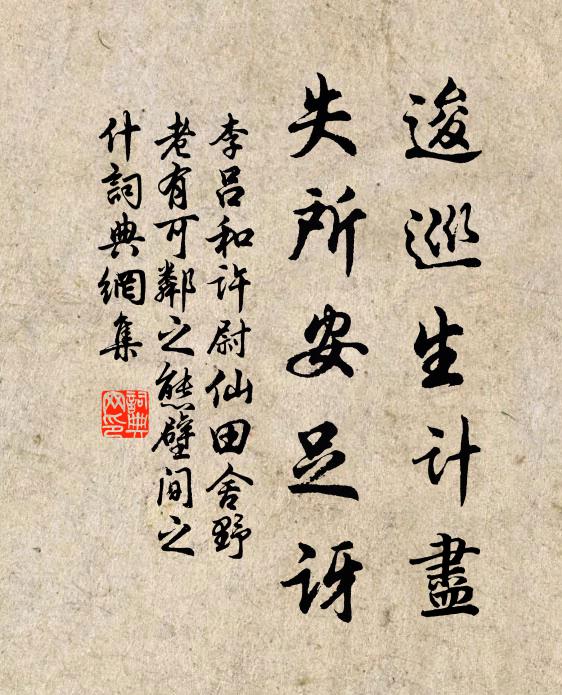 逡巡生計盡
失所安足訝
李吕和許尉仙田舍野
老有可鄰之態壁间之
什詞典網集
詞典
网印